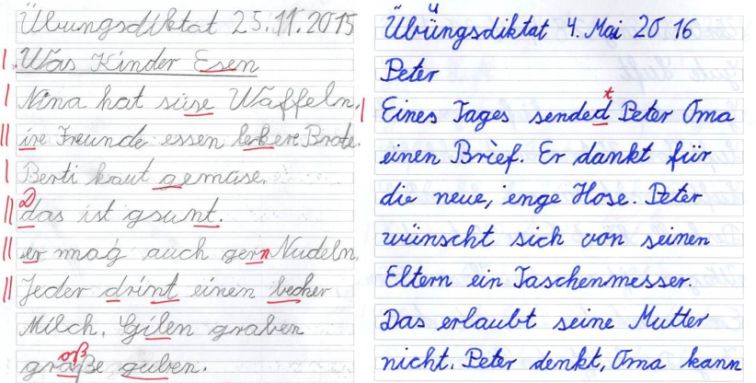 Übungsdiktat 25.11.2015
Was Kinder Esen
Nina hat süse Waffeln,
ire Freunde essen lerkere Brote.
Berti kaut gemüse.
D
das ist gsunt.
er mag auch gern Nudeln.
Jeder drint einen becher
Milch. Gilen graben
oß
graße guben.
Übüngsdiktat 4. Mai 2016
Peter
Eines Tages sended Peter Oma
einen Brief. Er dankt für
die neue, enge Hose. Peter
wünscht sich von seinen
Eltern ein Taschenmesser.
Das erlaubt seine Mutter
nicht. Peter denkt, Oma kann